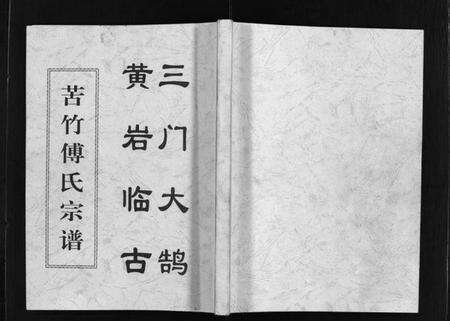 苦竹傅氏宗谱
三门大鹄
黄岩临古